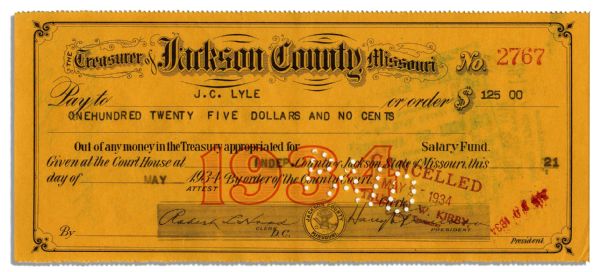 THE Treasurer of Jackson County Missouri No. 2767
Pay to J.C. LYLE or order $ 125 00
ONEHUNDRED TWENTY FIVE DOLLARS AND NO CENTS
Out of any money in the Treasury appropriated for Salary Fund.
Given at the Court House at INDEP County of Jackson State of Missouri, this 21
day of MAY 1934 By order of the County Court
1934
ATTEST
CANCELLED
MAY 1934
W. KIRBY
CLERK
D.C.
JACKSON COUNTY
MISSOURI
PRESIDENT
By President